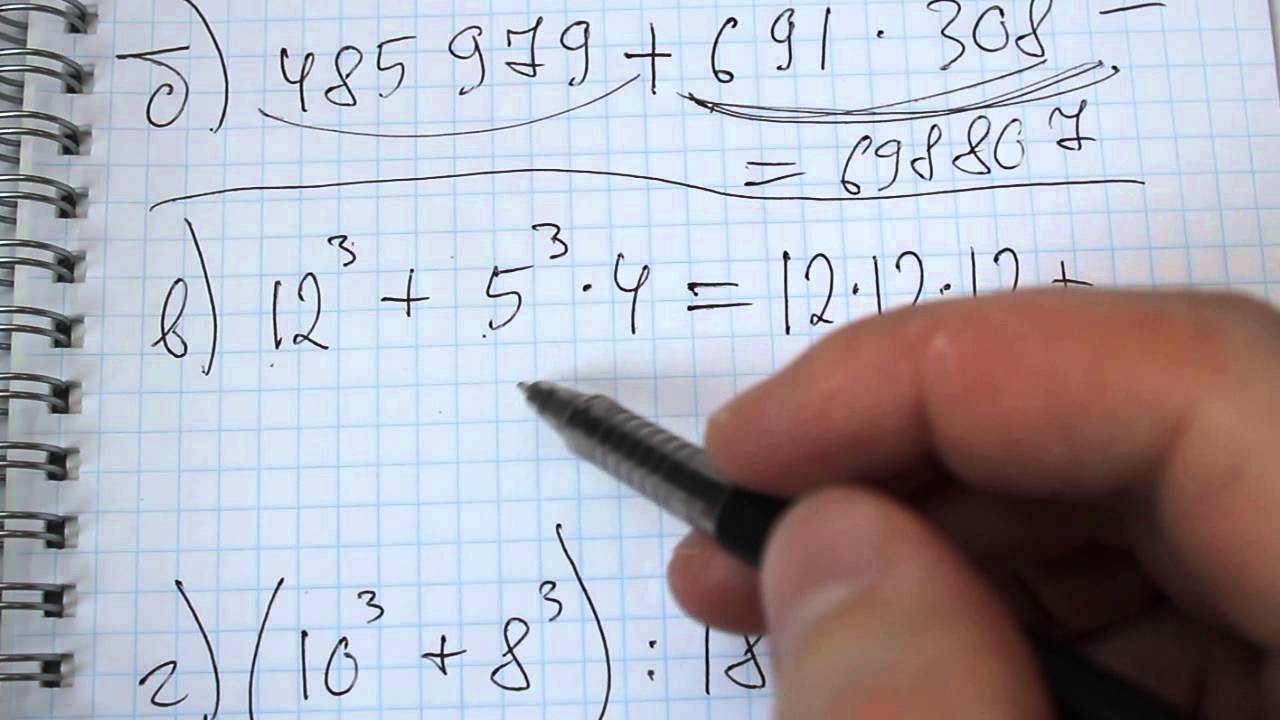 б) 485 979 + 691 · 308 =
= 698807
в) 12³ + 5³ · 4 = 12·12·12 +
г) (10³ + 8³) : 18